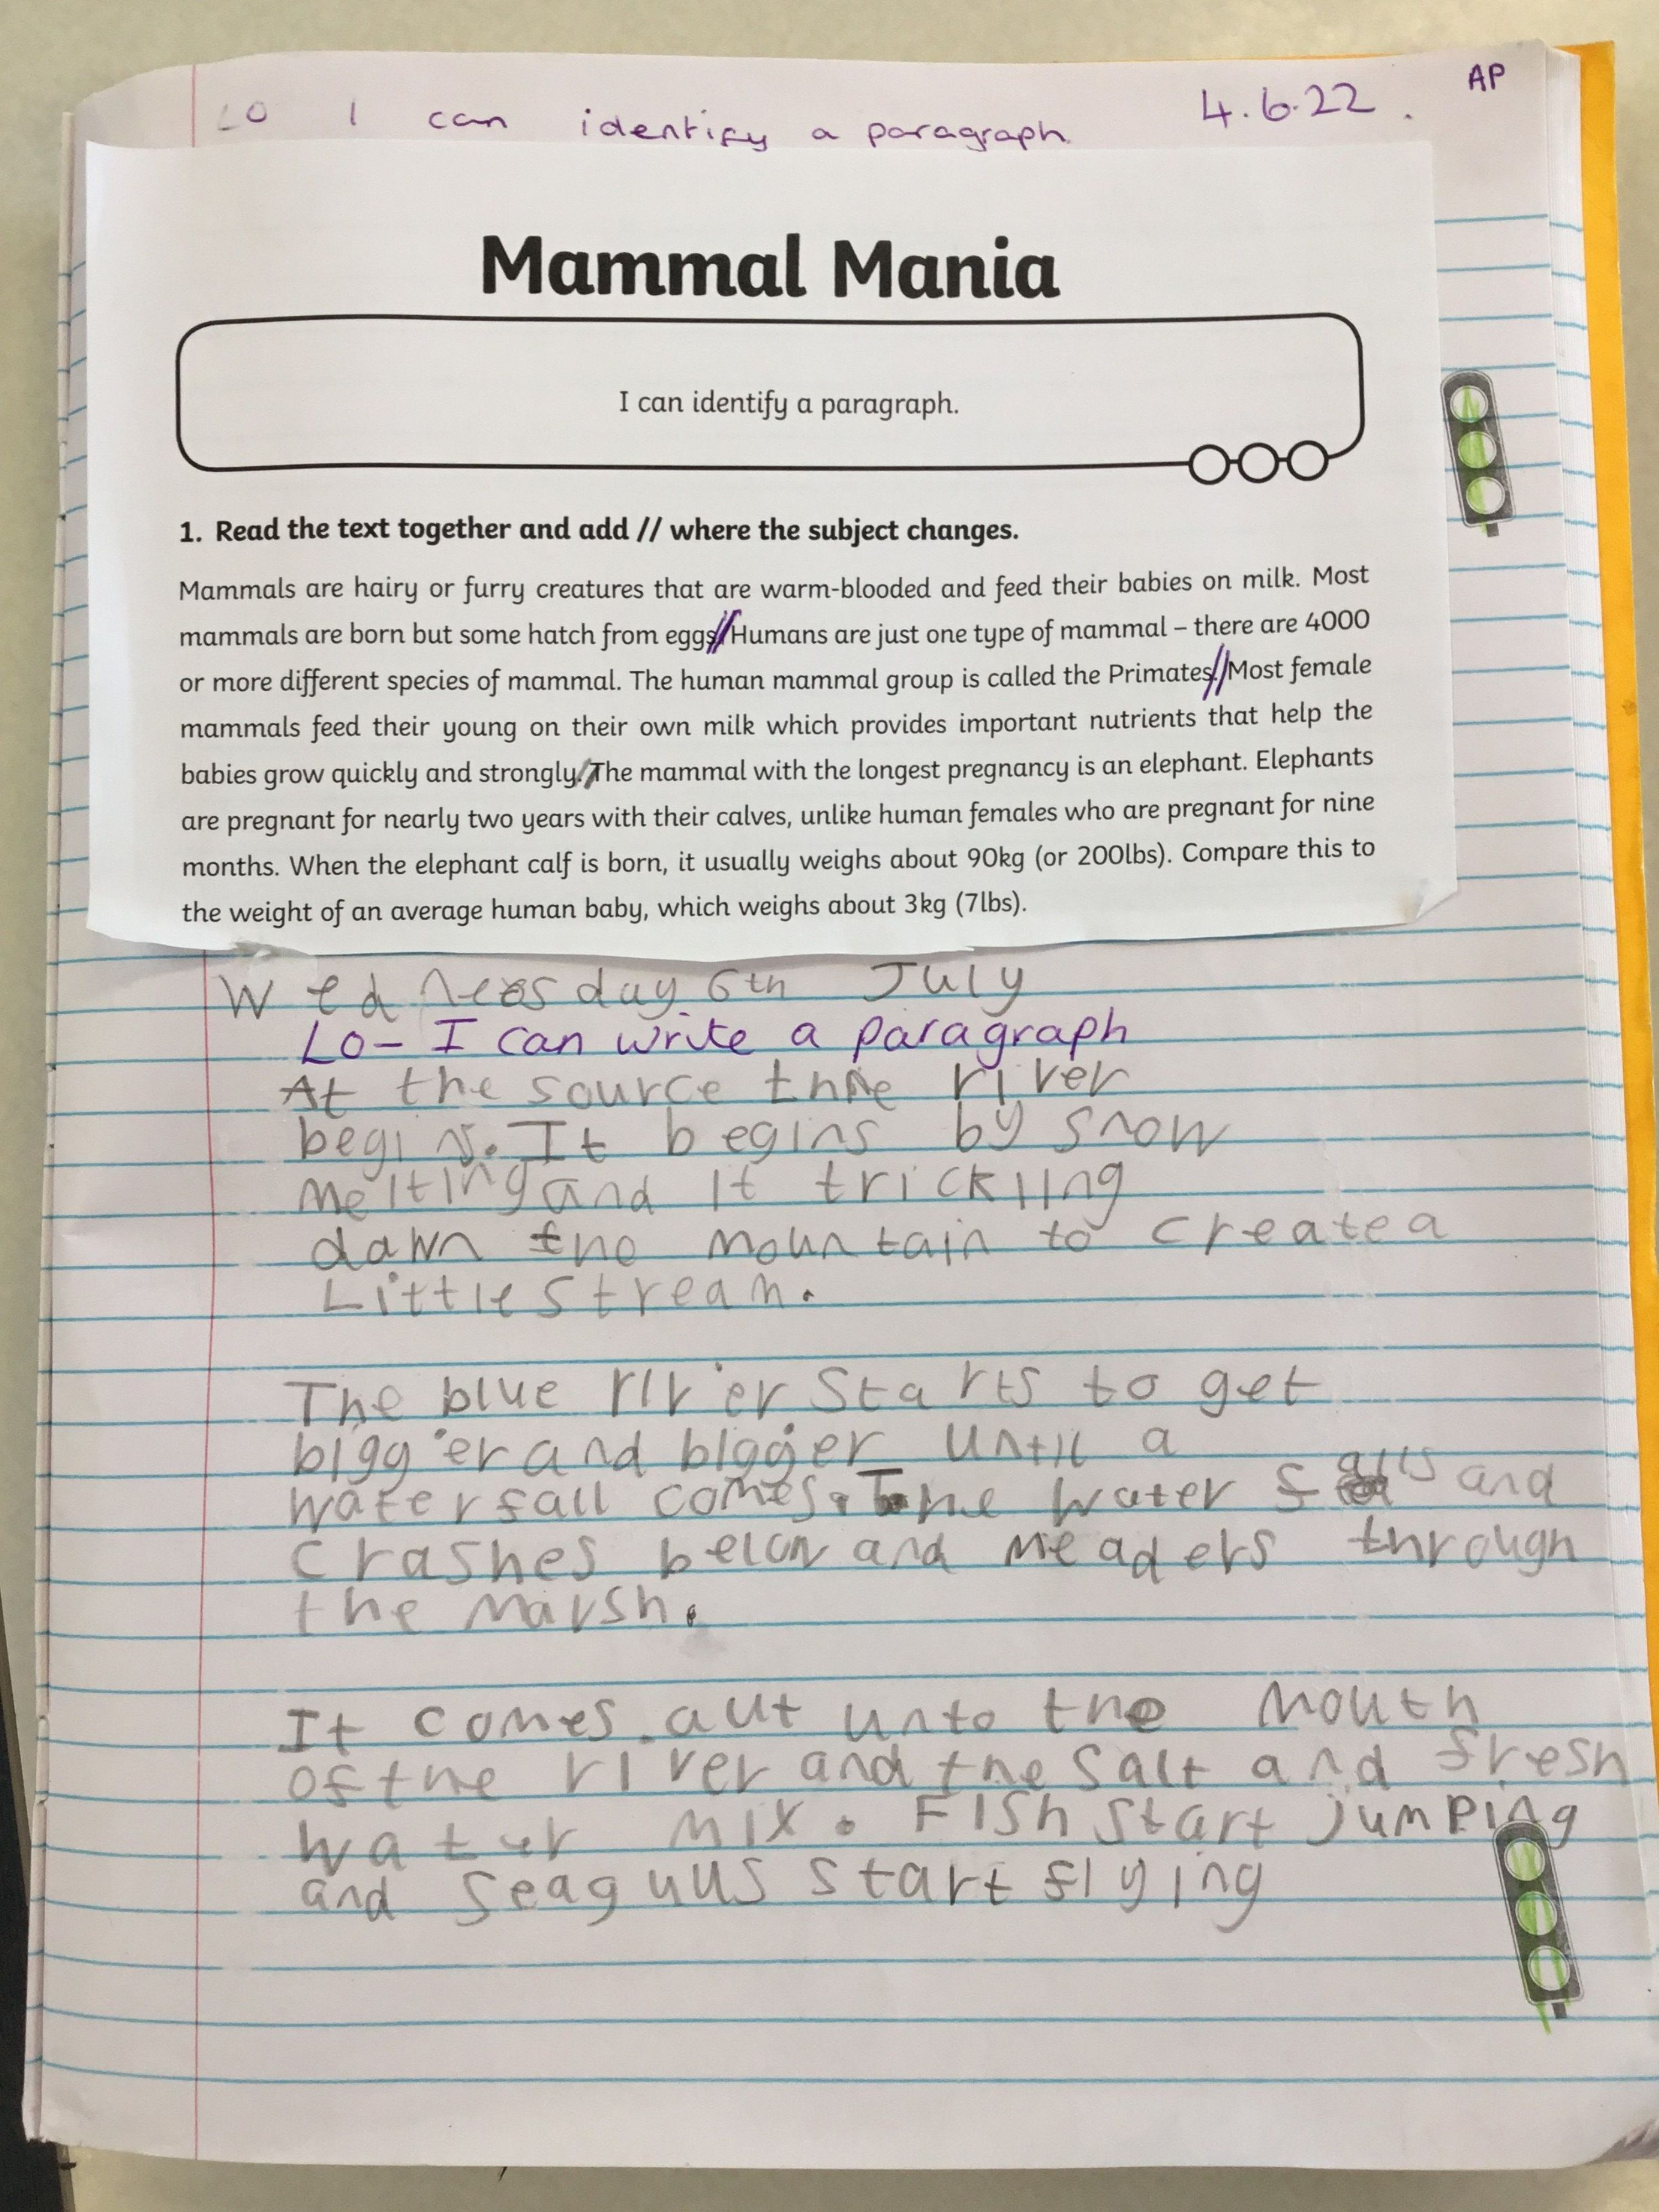 LO I can identify a paragraph 4.6.22. AP
Mammal Mania
I can identify a paragraph.
1. Read the text together and add // where the subject changes.
Mammals are hairy or furry creatures that are warm-blooded and feed their babies on milk. Most
mammals are born but some hatch from eggs.//Humans are just one type of mammal – there are 4000
or more different species of mammal. The human mammal group is called the Primates.//Most female
mammals feed their young on their own milk which provides important nutrients that help the
babies grow quickly and strongly.//The mammal with the longest pregnancy is an elephant. Elephants
are pregnant for nearly two years with their calves, unlike human females who are pregnant for nine
months. When the elephant calf is born, it usually weighs about 90kg (or 200lbs). Compare this to
the weight of an average human baby, which weighs about 3kg (7lbs).
Wednesday 6th July
LO- I can write a paragraph
At the source the river
begins. It begins by snow
melting and it trickling
dawn the mountain to create a
Little stream.
The blue river starts to get
bigger and bigger until a
waterfall comes. The water falls and
crashes below and meaders through
the marsh.
It comes aut unto the mouth
of the river and the salt and fresh
water mix. Fish start jumping
and seagulls start flying